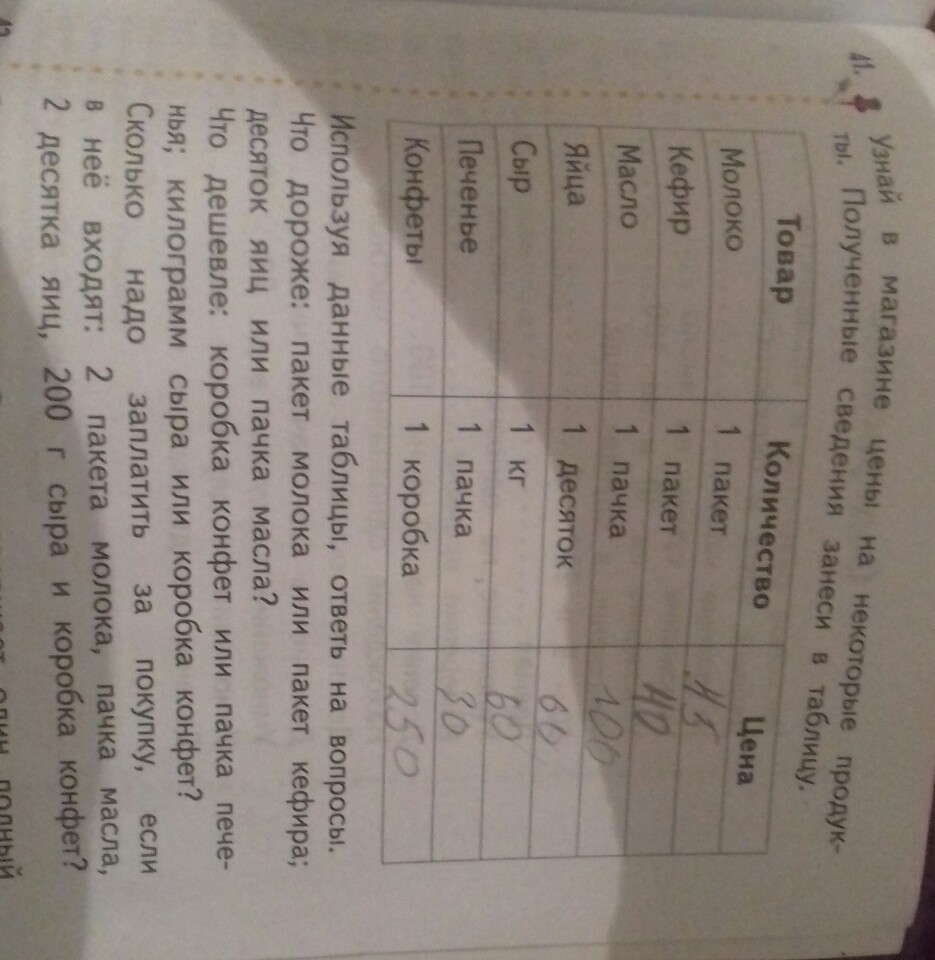 41. Узнай в магазине цены на некоторые продук-
ты. Полученные сведения занеси в таблицу.
Товар Количество Цена
Молоко 1 пакет 45
Кефир 1 пакет 40
Масло 1 пачка 100
Яйца 1 десяток 60
Сыр 1 кг 60
Печенье 1 пачка 30
Конфеты 1 коробка 250
Используя данные таблицы, ответь на вопросы.
Что дороже: пакет молока или пакет кефира;
десяток яиц или пачка масла?
Что дешевле: коробка конфет или пачка пече-
нья; килограмм сыра или коробка конфет?
Сколько надо заплатить за покупку, если
в неё входят: 2 пакета молока, пачка масла,
2 десятка яиц, 200 г сыра и коробка конфет?
полный